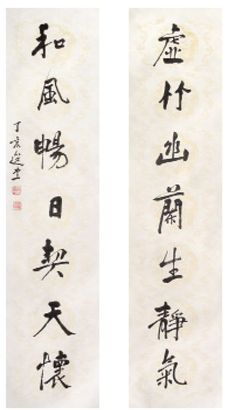 虛竹幽蘭生靜氣
和風暢日契天懷
丁亥